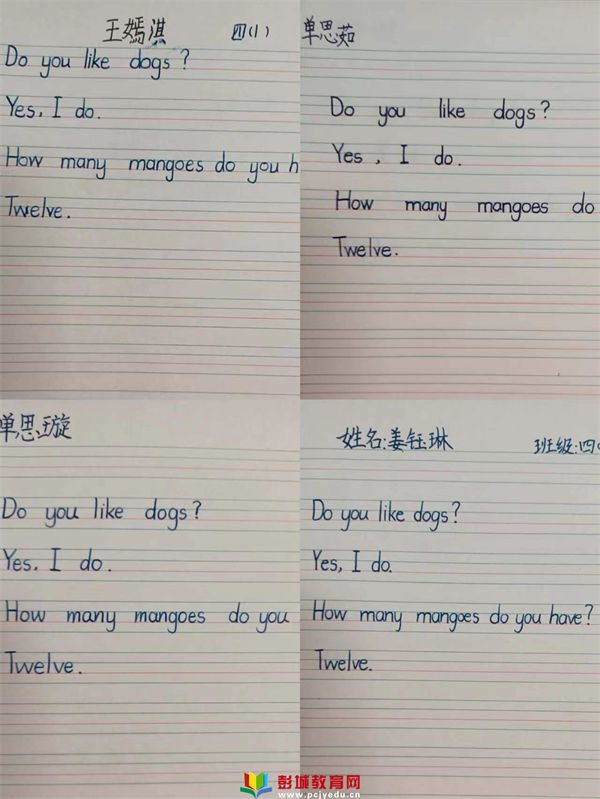 王嫣淇 四(1)
Do you like dogs?
Yes, I do.
How many mangoes do you h
Twelve.
单思茹
Do you like dogs?
Yes, I do.
How many mangoes do
Twelve.
单思璇
Do you like dogs?
Yes, I do.
How many mangoes do you
Twelve.
姓名:姜钰琳 班级:四(
Do you like dogs?
Yes, I do.
How many mangoes do you have?
Twelve.
彭城教育网
www.pcjyedu.cn